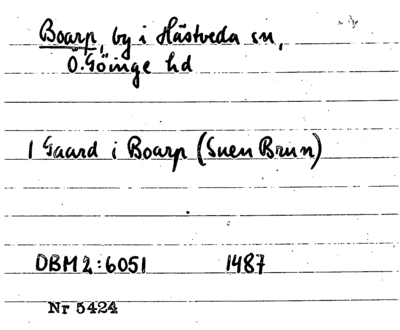 Boarp, by i Hästveda sn,
Ö. Göinge hd
1 Gaard i Boarp (Suen Brun)
DBM 2:6051 1487
Nr 5424